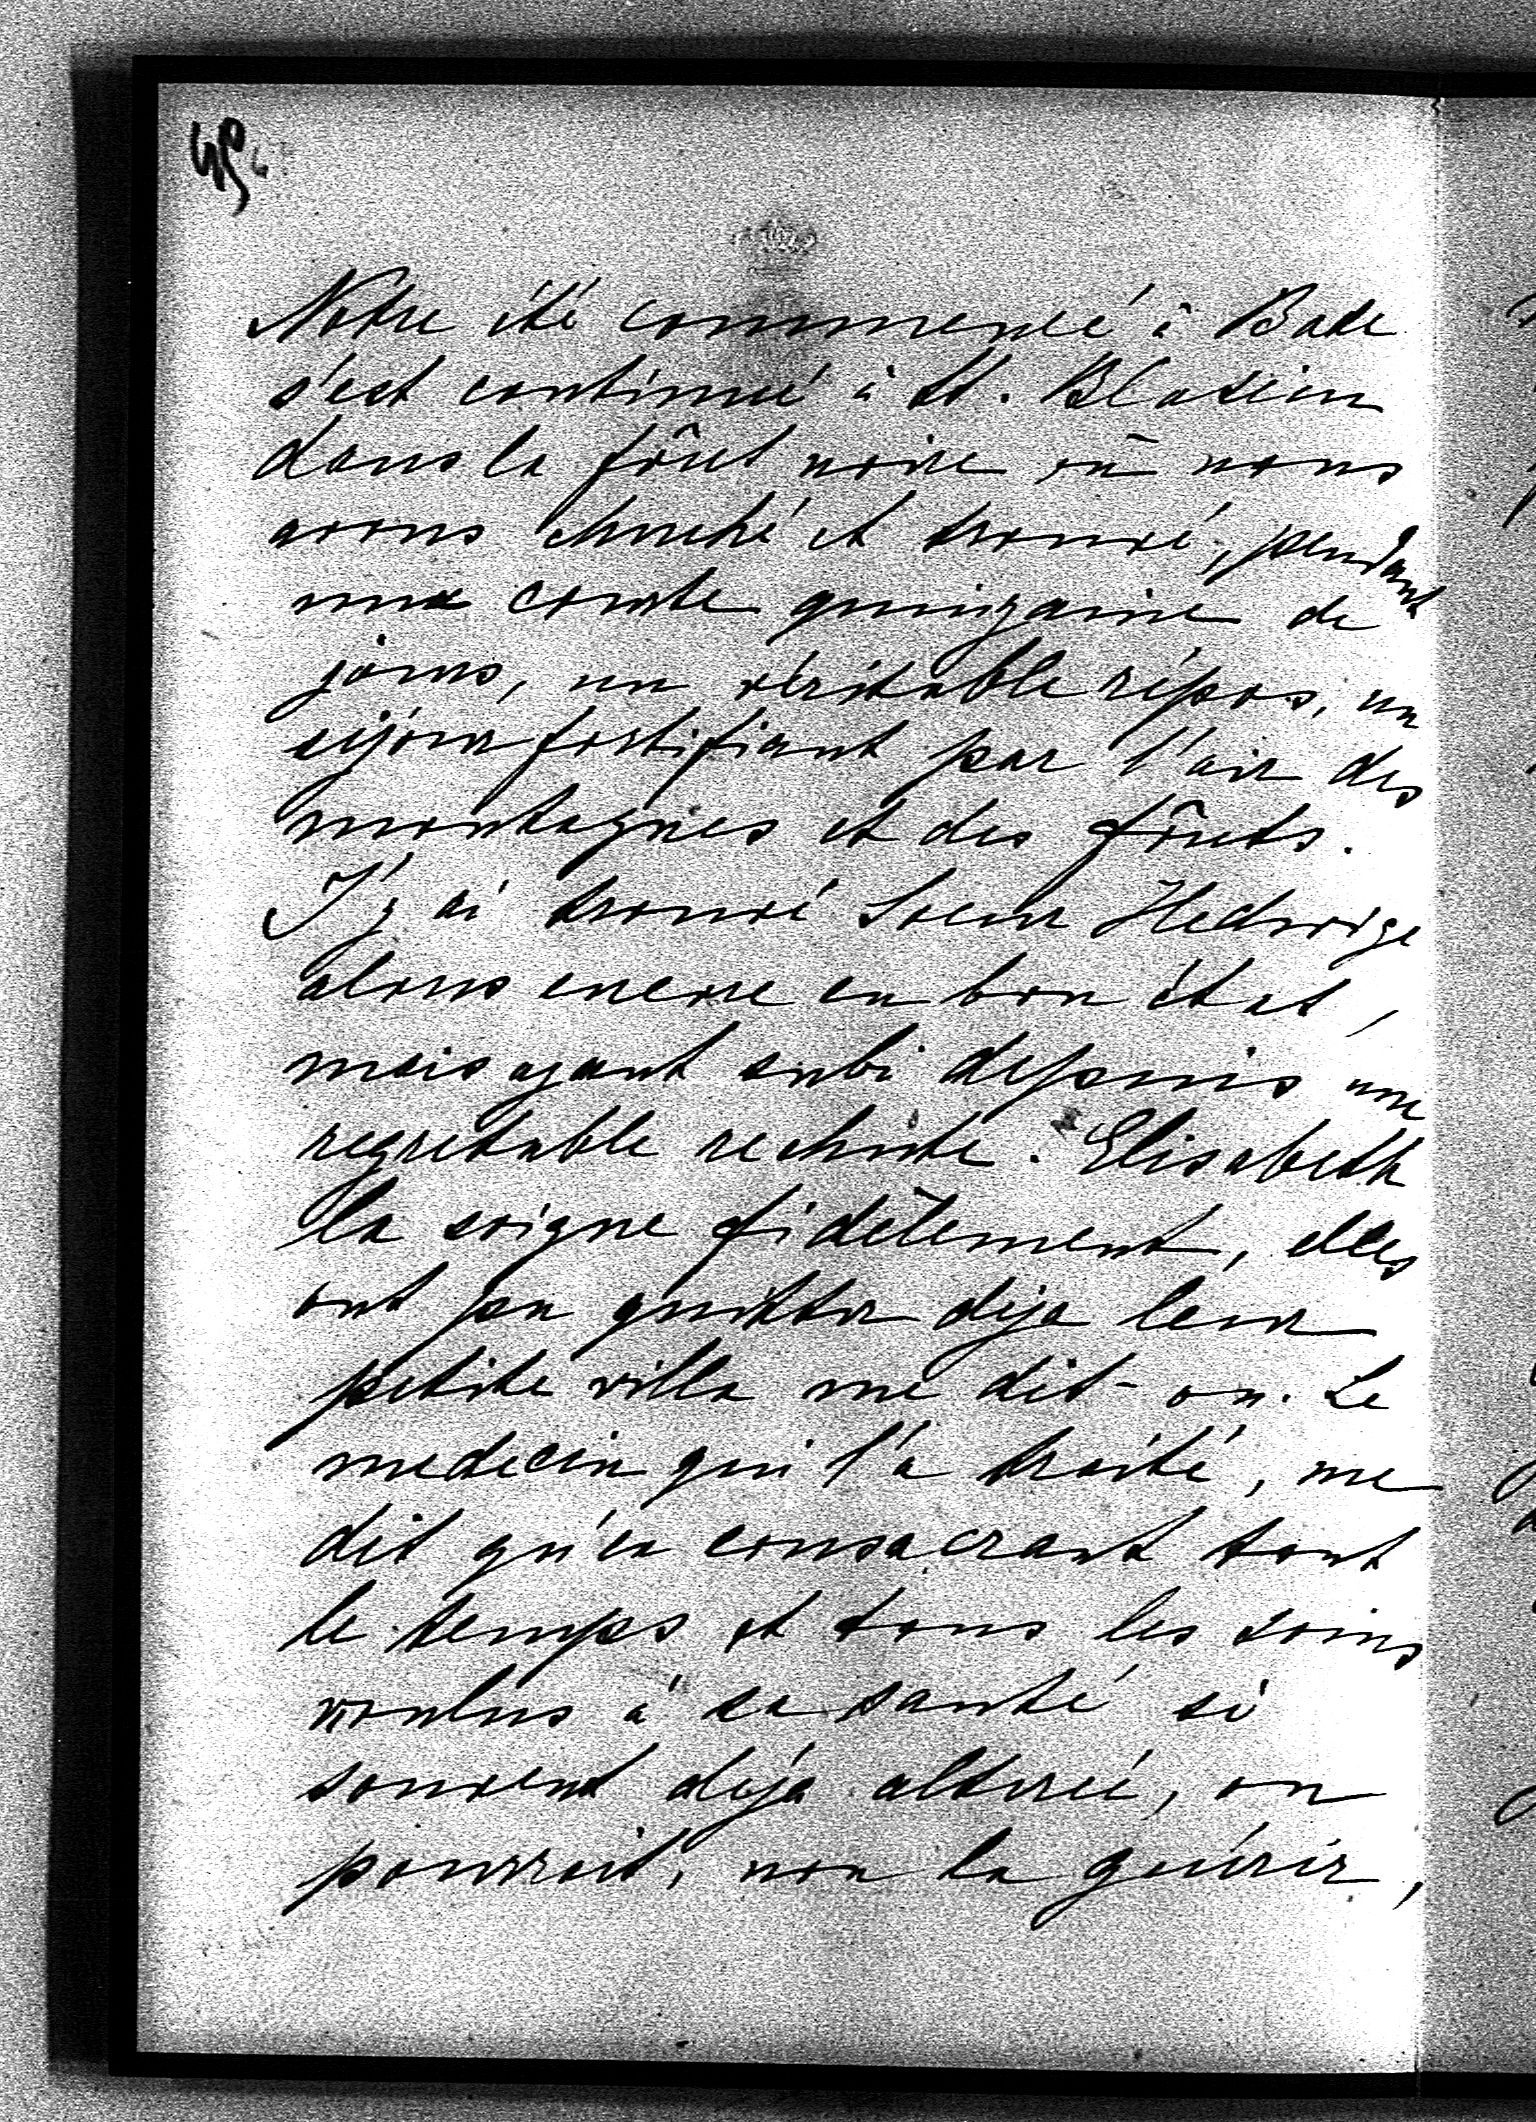 Notre été commencé à Bade
s'est continué à St. Blasien
dans la fôret noire où nous
avons cherché et trouvé, pendant
une courte quinzaine de
jours, un véritable répos, un
séjour fortifiant par l'air des
montagnes et des fôrets.
J'y ai trouvé Soeur Hedwige
alors encore en bon état,
mais ayant subi depuis une
regretable rechute. Elisabeth
la soigne fidèlement, elles
ont pu quitter déja leur
petite villa me dit-on. Le
medecin qui l'a traité, me
dit qu'en consacrant tout
le temps et tous les soins
voulus à sa santé si
souvent déja alterée, on
pourrait, non la guérir,